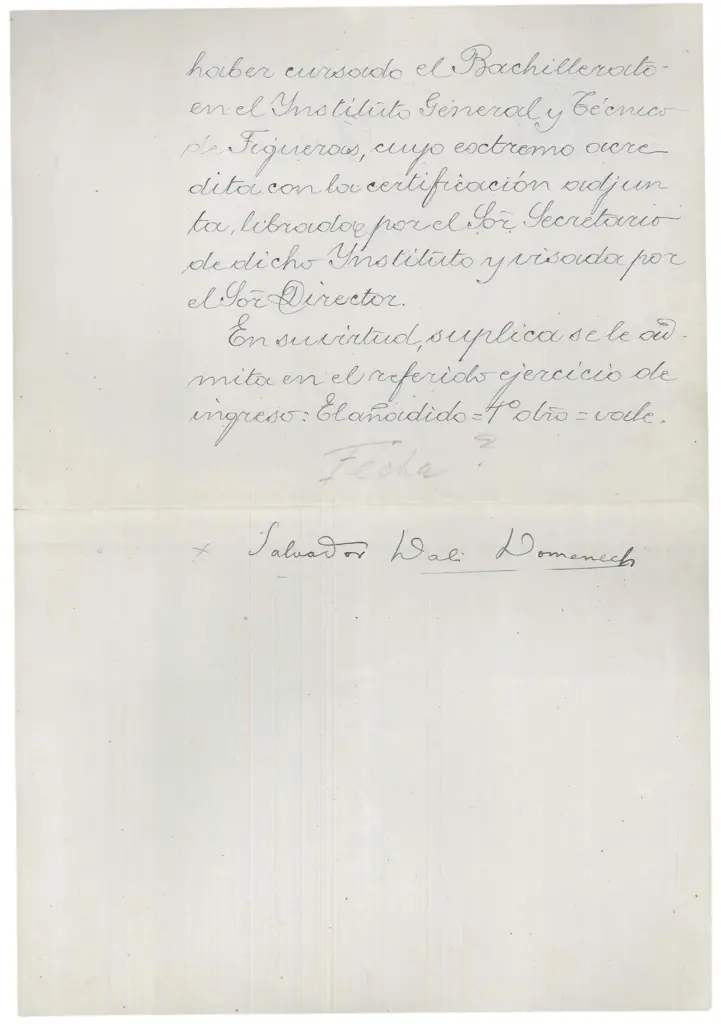 haber cursado el Bachillerato
en el Ynstituto General y Técnico
de Figueras, cuyo extremo acre
dita con la certificación adjun
ta, librada por el Sor. Secretario
de dicho Ynstituto y visada por
el Sor Director.
En su virtud, suplica se le ad-
mita en el referido ejercicio de
ingreso: El añadido = 4º otro = vale.
Fecha ?
x Salvador Dali Domenech